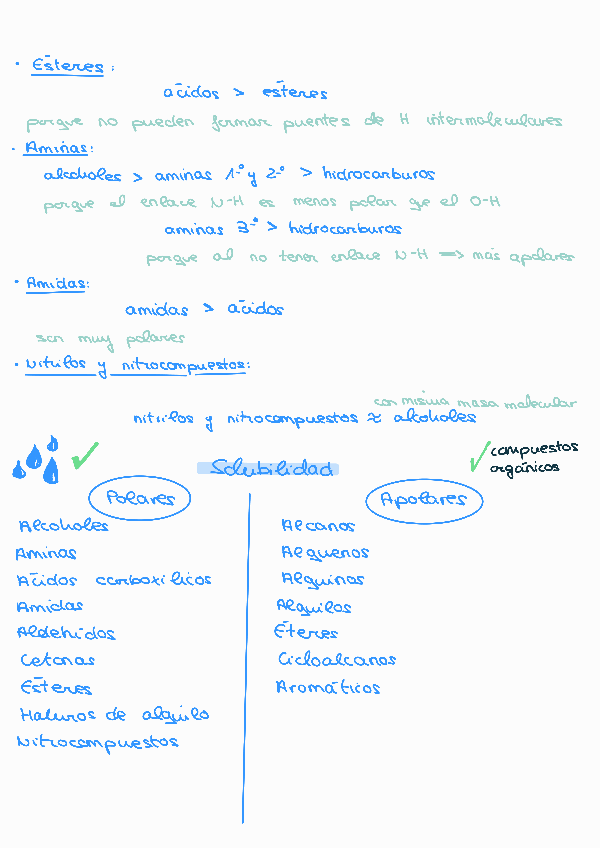 · Ésteres:
ácidos > ésteres
porque no pueden formar puentes de H intermoleculares
· Aminas:
alcoholes > aminas 1º y 2º > hidrocarburos
porque el enlace N-H es menos polar qe el O-H
aminas 3º > hidrocarburos
porque al no tener enlace N-H => más apolares
· Amidas:
amidas > ácidos
son muy polares
· Nitrilos y nitrocompuestos:
con misma masa molecular
nitrilos y nitrocompuestos ≈ alcoholes
Solubilidad
✓ compuestos
orgánicos
Polares
Alcoholes
Aminas
Ácidos carboxílicos
Amidas
Aldehídos
Cetonas
Ésteres
Haluros de alquilo
Nitrocompuestos
Apolares
Alcanos
Alquenos
Alquinos
Alquilos
Éteres
Cicloalcanos
Aromáticos